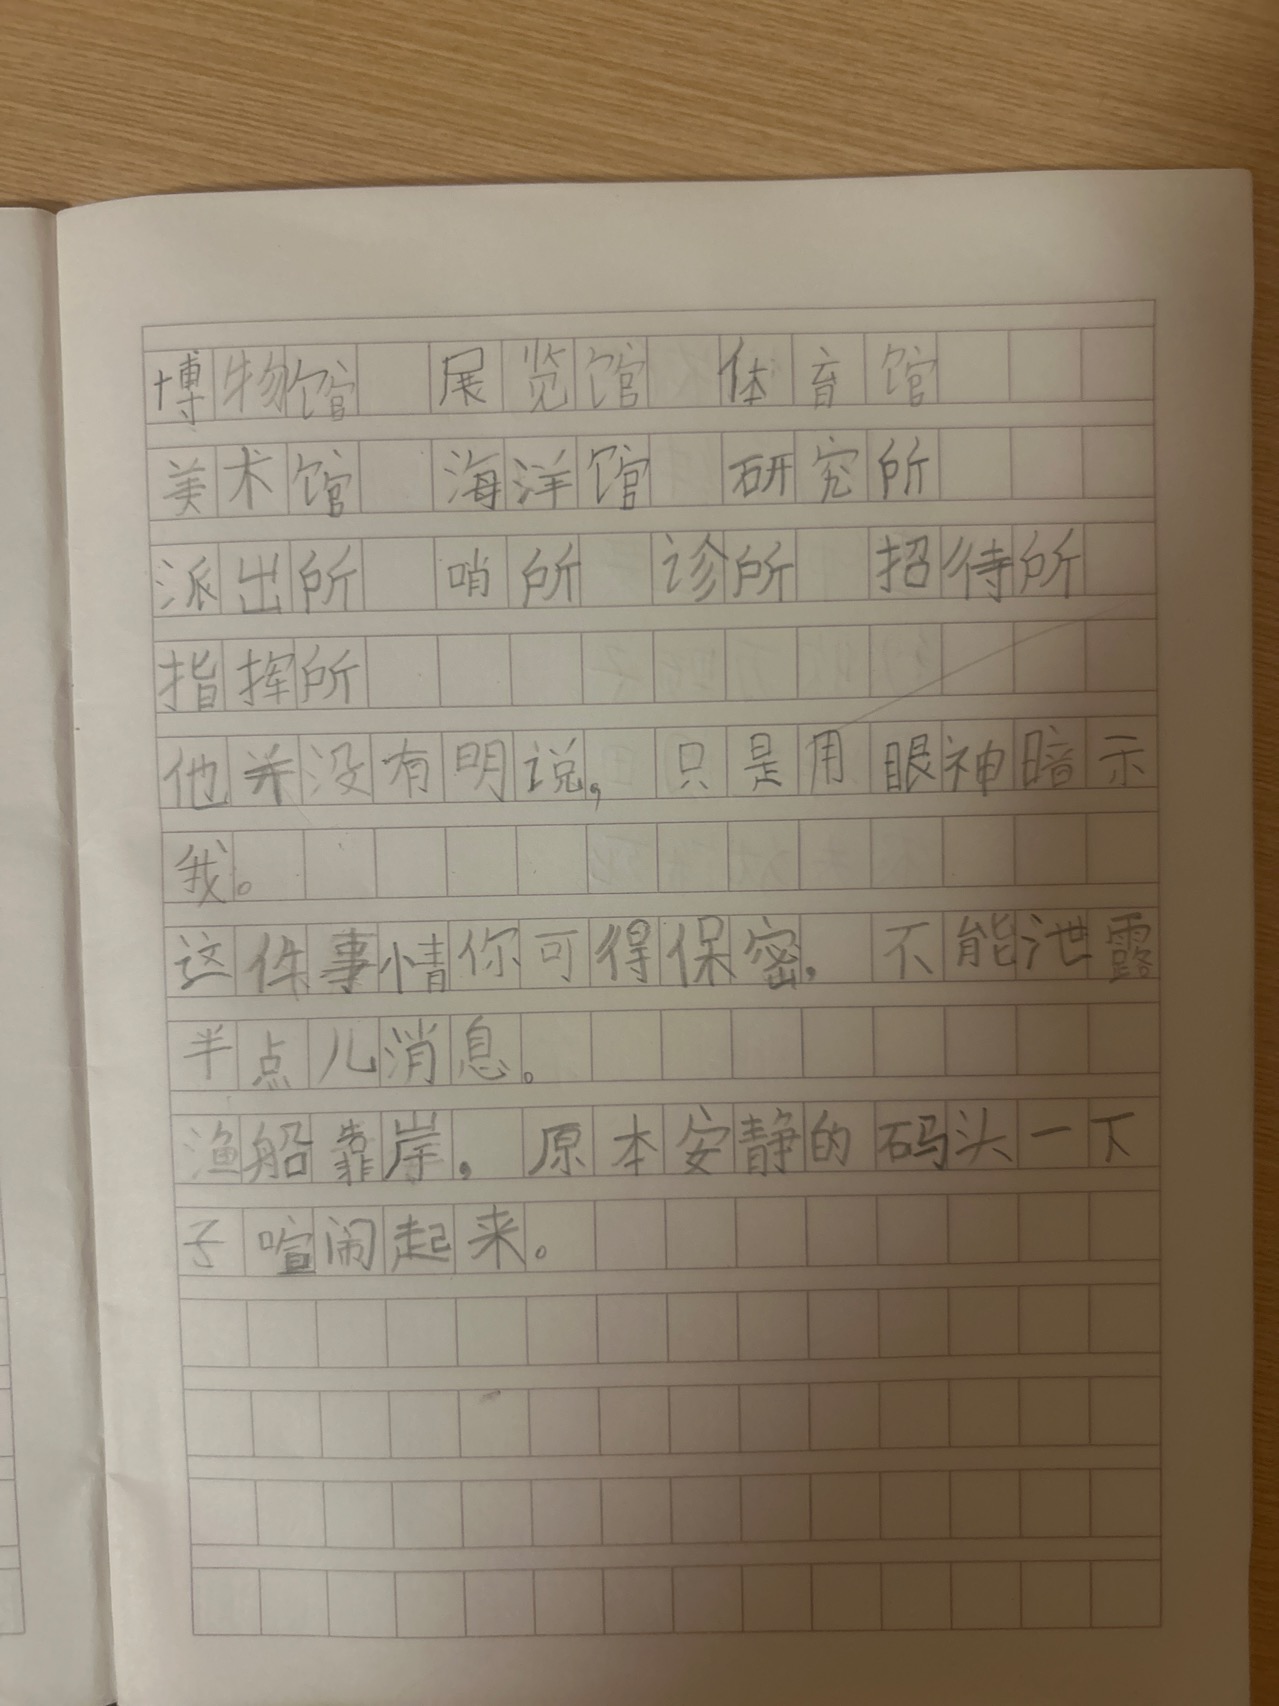 博物馆 展览馆 体育馆
美术馆 海洋馆 研究所
派出所 哨所 诊所 招待所
指挥所
他并没有明说，只是用眼神暗示
我。
这件事情你可得保密，不能泄露
半点儿消息。
渔船靠岸，原本安静的码头一下
子喧闹起来。